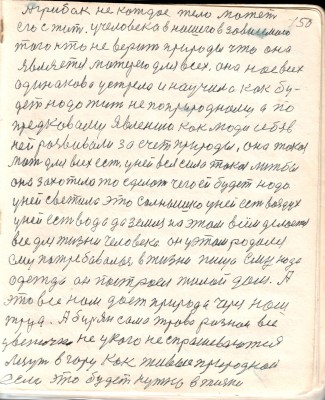 150
А грибак не каждое тело может
его сжит. у человека в нашего
того што не верит природи что она
является матерю для всех. она на всех
одинаково устроила и научила как бу-
дет надо жит не поприродному а по
предковому явлению как люди себя в
ней развивали за счет природы, она такая
мат для всех ест. у ней вся сила такая
она захотела то сделат чего ей будет надо
у ней светила это солнышко у ней ест воздух
у ней ест вода да земля на этом всем делается
все для жизни человека он у этом родился
ему потребавалас в жизни пища ему надо
одежда он построил жилой дом. А
это все нам дает природа через наш
труд. А бурян сама трава разная все
не у кого не спрашеваются
лезут в гору как живые природной
сило это будет нужно в жизни